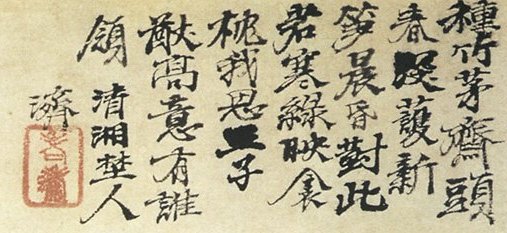 種竹茅齋頭
春深護新
筍晨昏對此
君寒綠映衾
枕我思王子
猷高意有誰
領 清湘埜人
濟